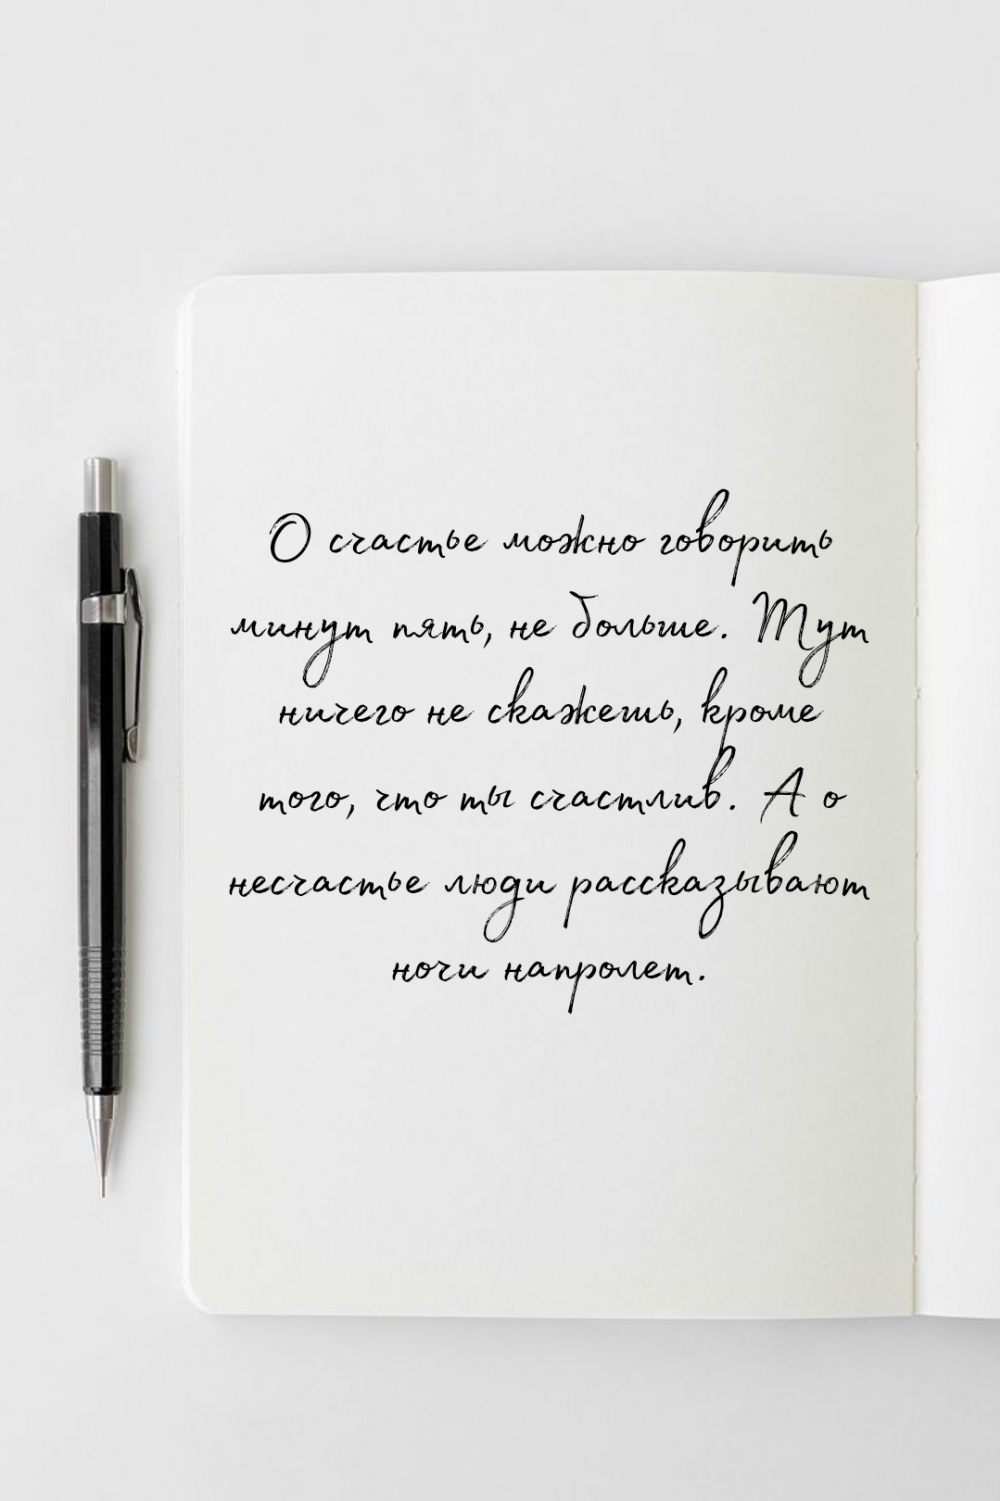 О счастье можно говорить
минут пять, не больше. Тут
ничего не скажешь, кроме
того, что ты счастлив. А о
несчастье люди рассказывают
ночи напролет.